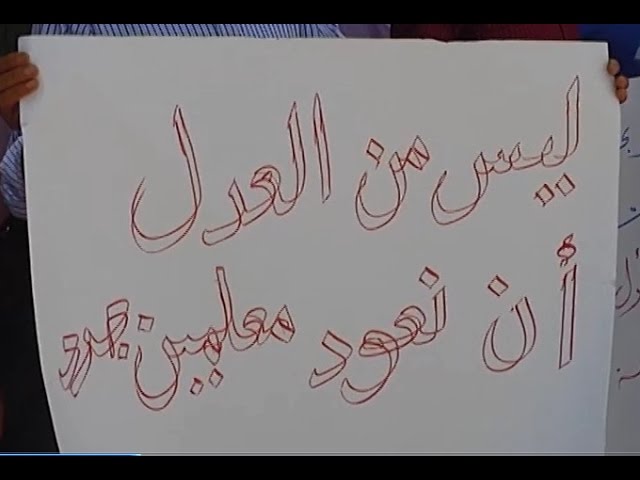 ليس من العدل
أن نعود معلمين جدد